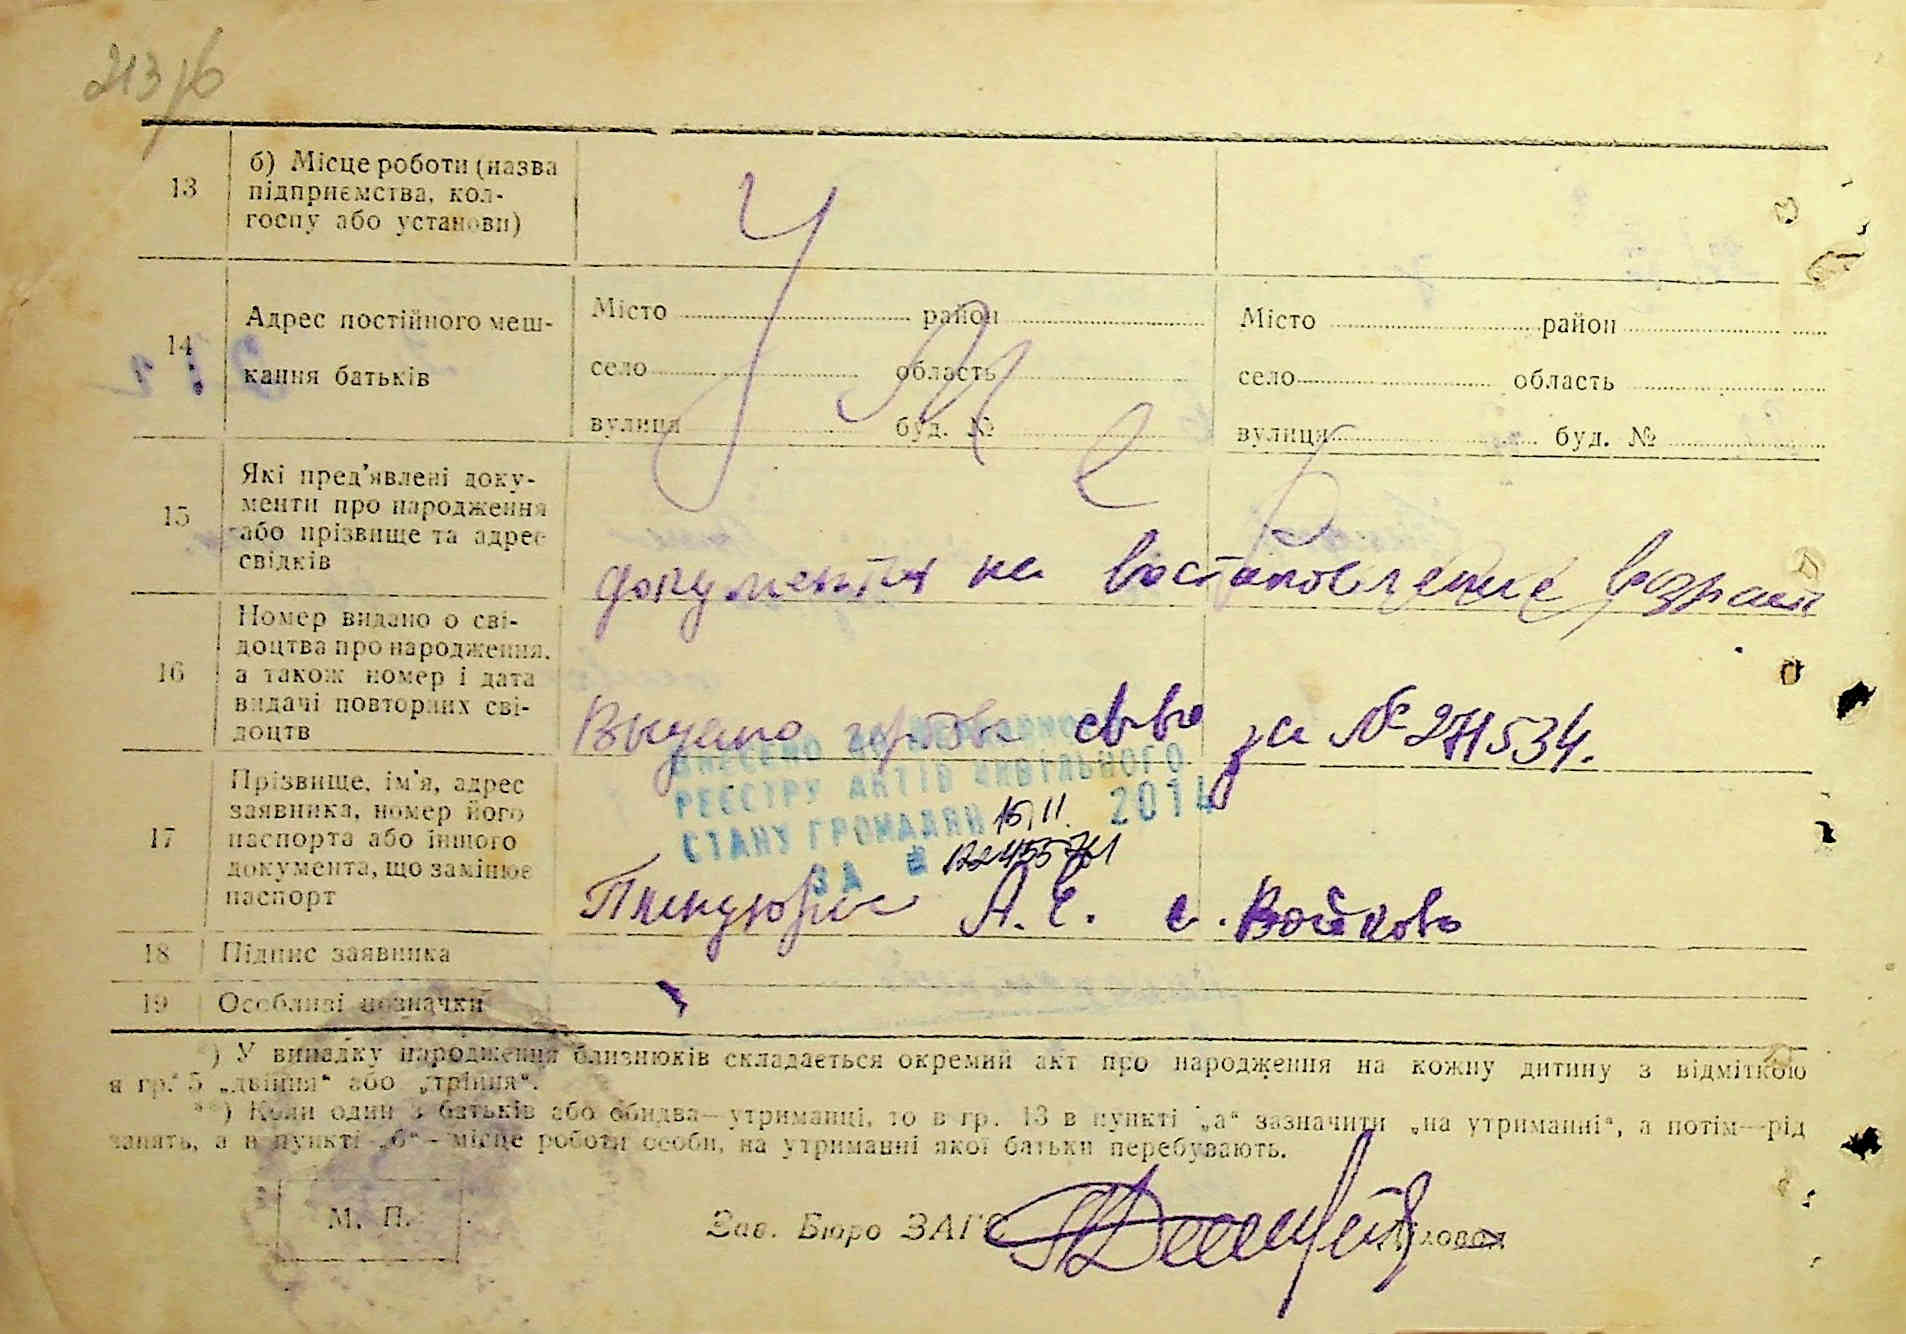 213
13
б) Місце роботи (назва
підприємства, кол-
госпу або установи)
14
Адрес постійного меш-
кання батьків
Місто район
село область
вулиця буд. №
Місто район
село область
вулиця буд. №
15
Які пред'явлені доку-
менти про народження
або прізвище та адрес
свідків
документы на востановление возраста
16
Номер видано о сві-
доцтва про народження,
а також номер і дата
видачі повторних сві-
доцтв
Выдано св-во за № 271534.
ВНЕСЕНО ДО ДЕРЖАВНОГО
РЕЄСТРУ АКТІВ ЦИВІЛЬНОГО
СТАНУ ГРОМАДЯН 15.11. 2014
ЗА №
17
Прізвище, ім'я, адрес
заявника, номер його
паспорта або іншого
документа, що замінює
паспорт
А. с. Войково
18
Підпис заявника
19
Особливі позначки
*) У випадку народження близнюків складається окремий акт про народження на кожну дитину з відміткою
в гр. 5 „двійня“ або „трійня“.
**) Коли один з батьків або обидва—утриманці, то в гр. 13 в пункті „а“ зазначити „на утриманні“, а потім—рід
занять, а в пункті „б“ – місце роботи особи, на утриманні якої батьки перебувають.
М. П.
Зав. Бюро ЗАГС